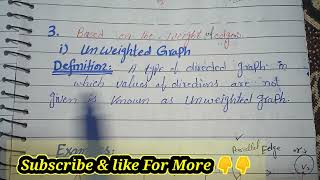 3. Based on the weight of edges
i) Unweighted Graph
Definition: A type of directed graph in
which values of directions are not
given is known as unweighted graph.
Subscribe & like For More 👇👇
Examples:
Parallel Edge
V₂